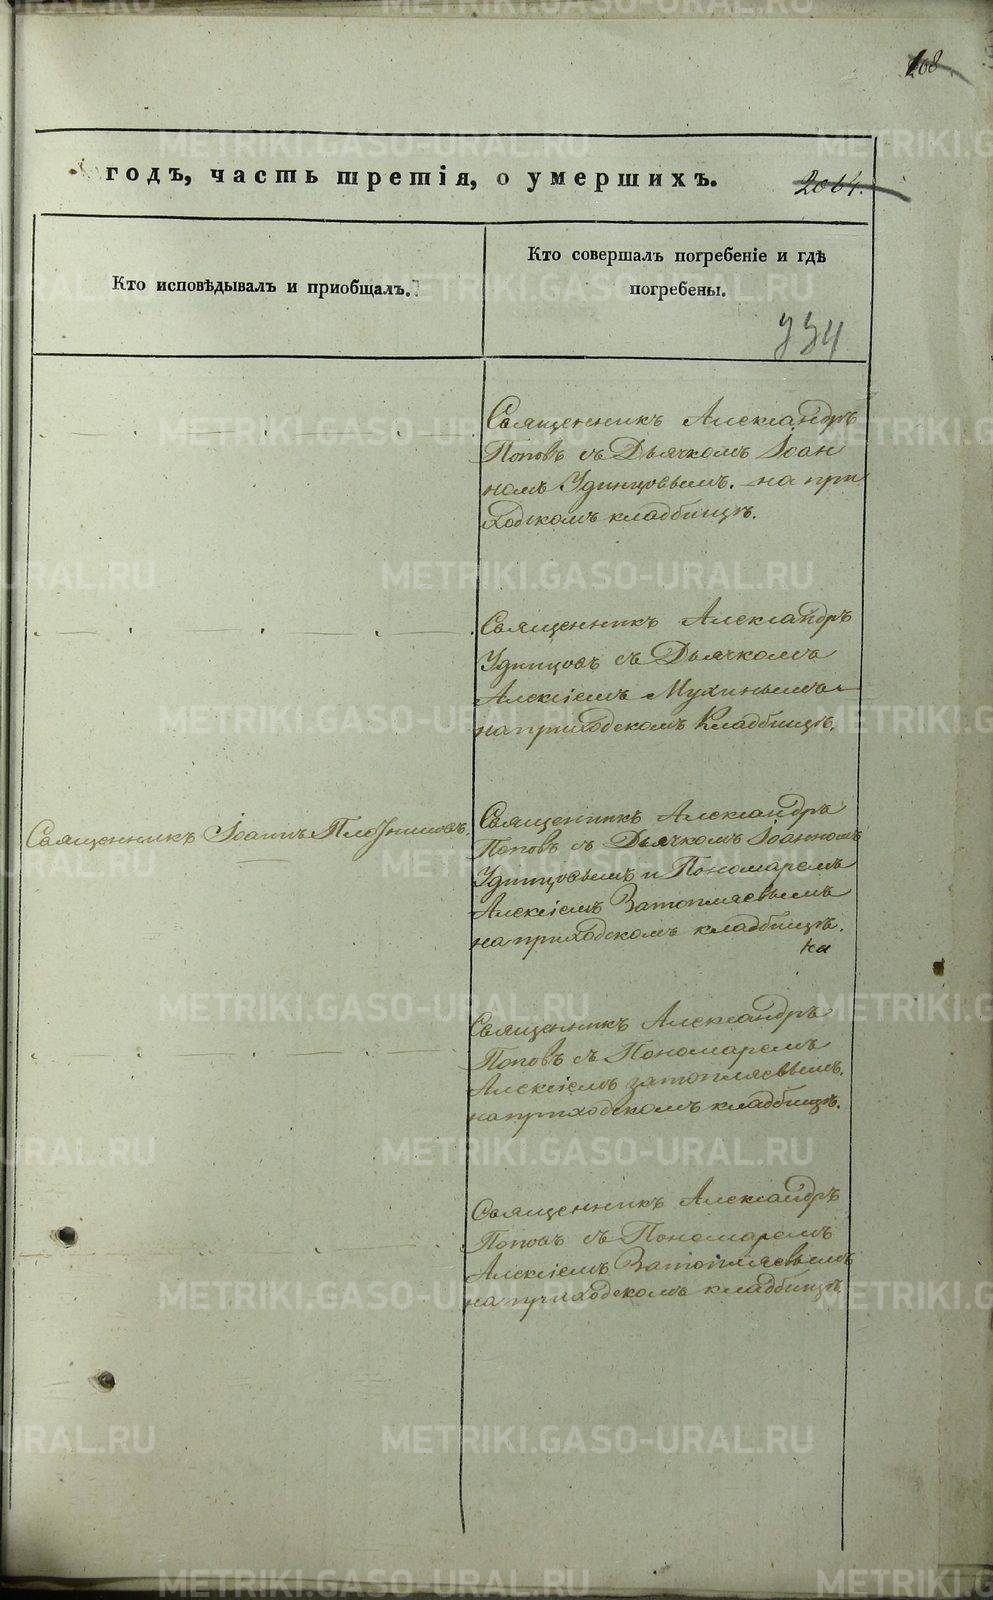 108
годъ, часть третія, о умершихъ.
2064.
Кто исповѣдывалъ и приобщалъ.
Кто совершалъ погребеніе и гдѣ
погребены.
334
Священникъ Александръ
Поповъ съ Дьячкомъ Іоан
номъ Удинцовымъ. на при
ходскомъ кладбищѣ.
Священникъ Александръ
Удинцовъ съ Дьячкомъ
Алексіемъ Мухинымъ
на приходскомъ Кладбищѣ.
Священникъ Іоаннъ Плотниковъ.
Священникъ Александръ
Поповъ съ Дьячкомъ Іоанномъ
Удинцовымъ и Пономаремъ
Алексіемъ Затопляевымъ
на приходскомъ кладбищѣ.
Священникъ Александръ
Поповъ съ Пономаремъ
Алексіемъ затопляевымъ.
на приходскомъ кладбищѣ.
Священникъ Александръ
Поповъ съ Пономаремъ
Алексіемъ Затопляевымъ
на приходскомъ кладбищѣ.
METRIKI.GASO-URAL.RU